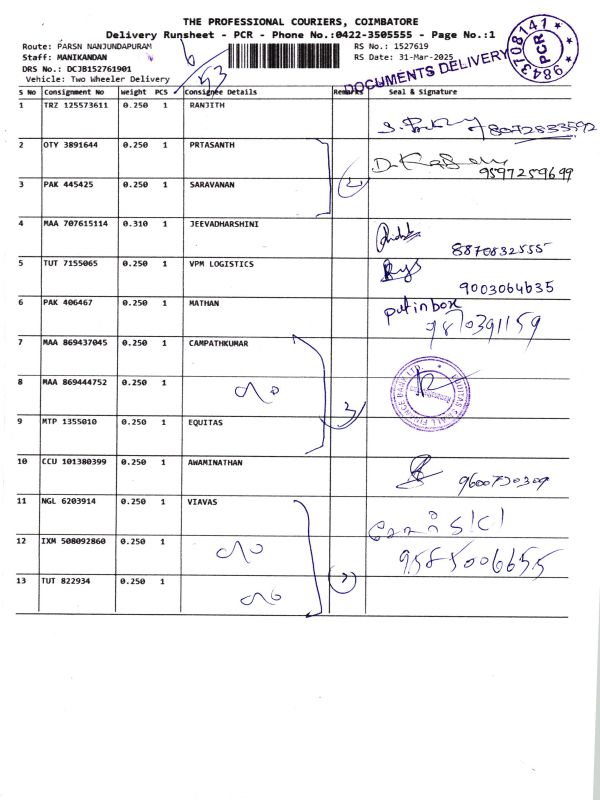 THE PROFESSIONAL COURIERS, COIMBATORE
Delivery Runsheet - PCR - Phone No.:0422-3505555 - Page No.:1
Route: PARSN NANJUNDAPURAM
RS No.: 1527619
Staff: MANIKANDAN
RS Date: 31-Mar-2025
DRS No.: DCJB152761901
Vehicle: Two Wheeler Delivery
DOCUMENTS DELIVERY
9843708141
PCR
S No Consignment No Weight PCS Consignee Details Remarks Seal & Signature
1 TRZ 125573611 0.250 1 RANJITH
8072833592
2 OTY 3891644 0.250 1 PRTASANTH
9597259699
3 PAK 445425 0.250 1 SARAVANAN
4 MAA 707615114 0.310 1 JEEVADHARSHINI
8870832555
5 TUT 7155065 0.250 1 VPM LOGISTICS
9003064635
6 PAK 406467 0.250 1 MATHAN
put in box
9870391159
7 MAA 869437045 0.250 1 CAMPATHKUMAR
8 MAA 869444752 0.250 1
EQUITAS SMALL FINANCE BANK LTD.
9 MTP 1355010 0.250 1 EQUITAS
3
10 CCU 101380399 0.250 1 AWAMINATHAN
9600730309
11 NGL 6203914 0.250 1 VIAVAS
12 IXM 508092860 0.250 1
9585006655
13 TUT 822934 0.250 1